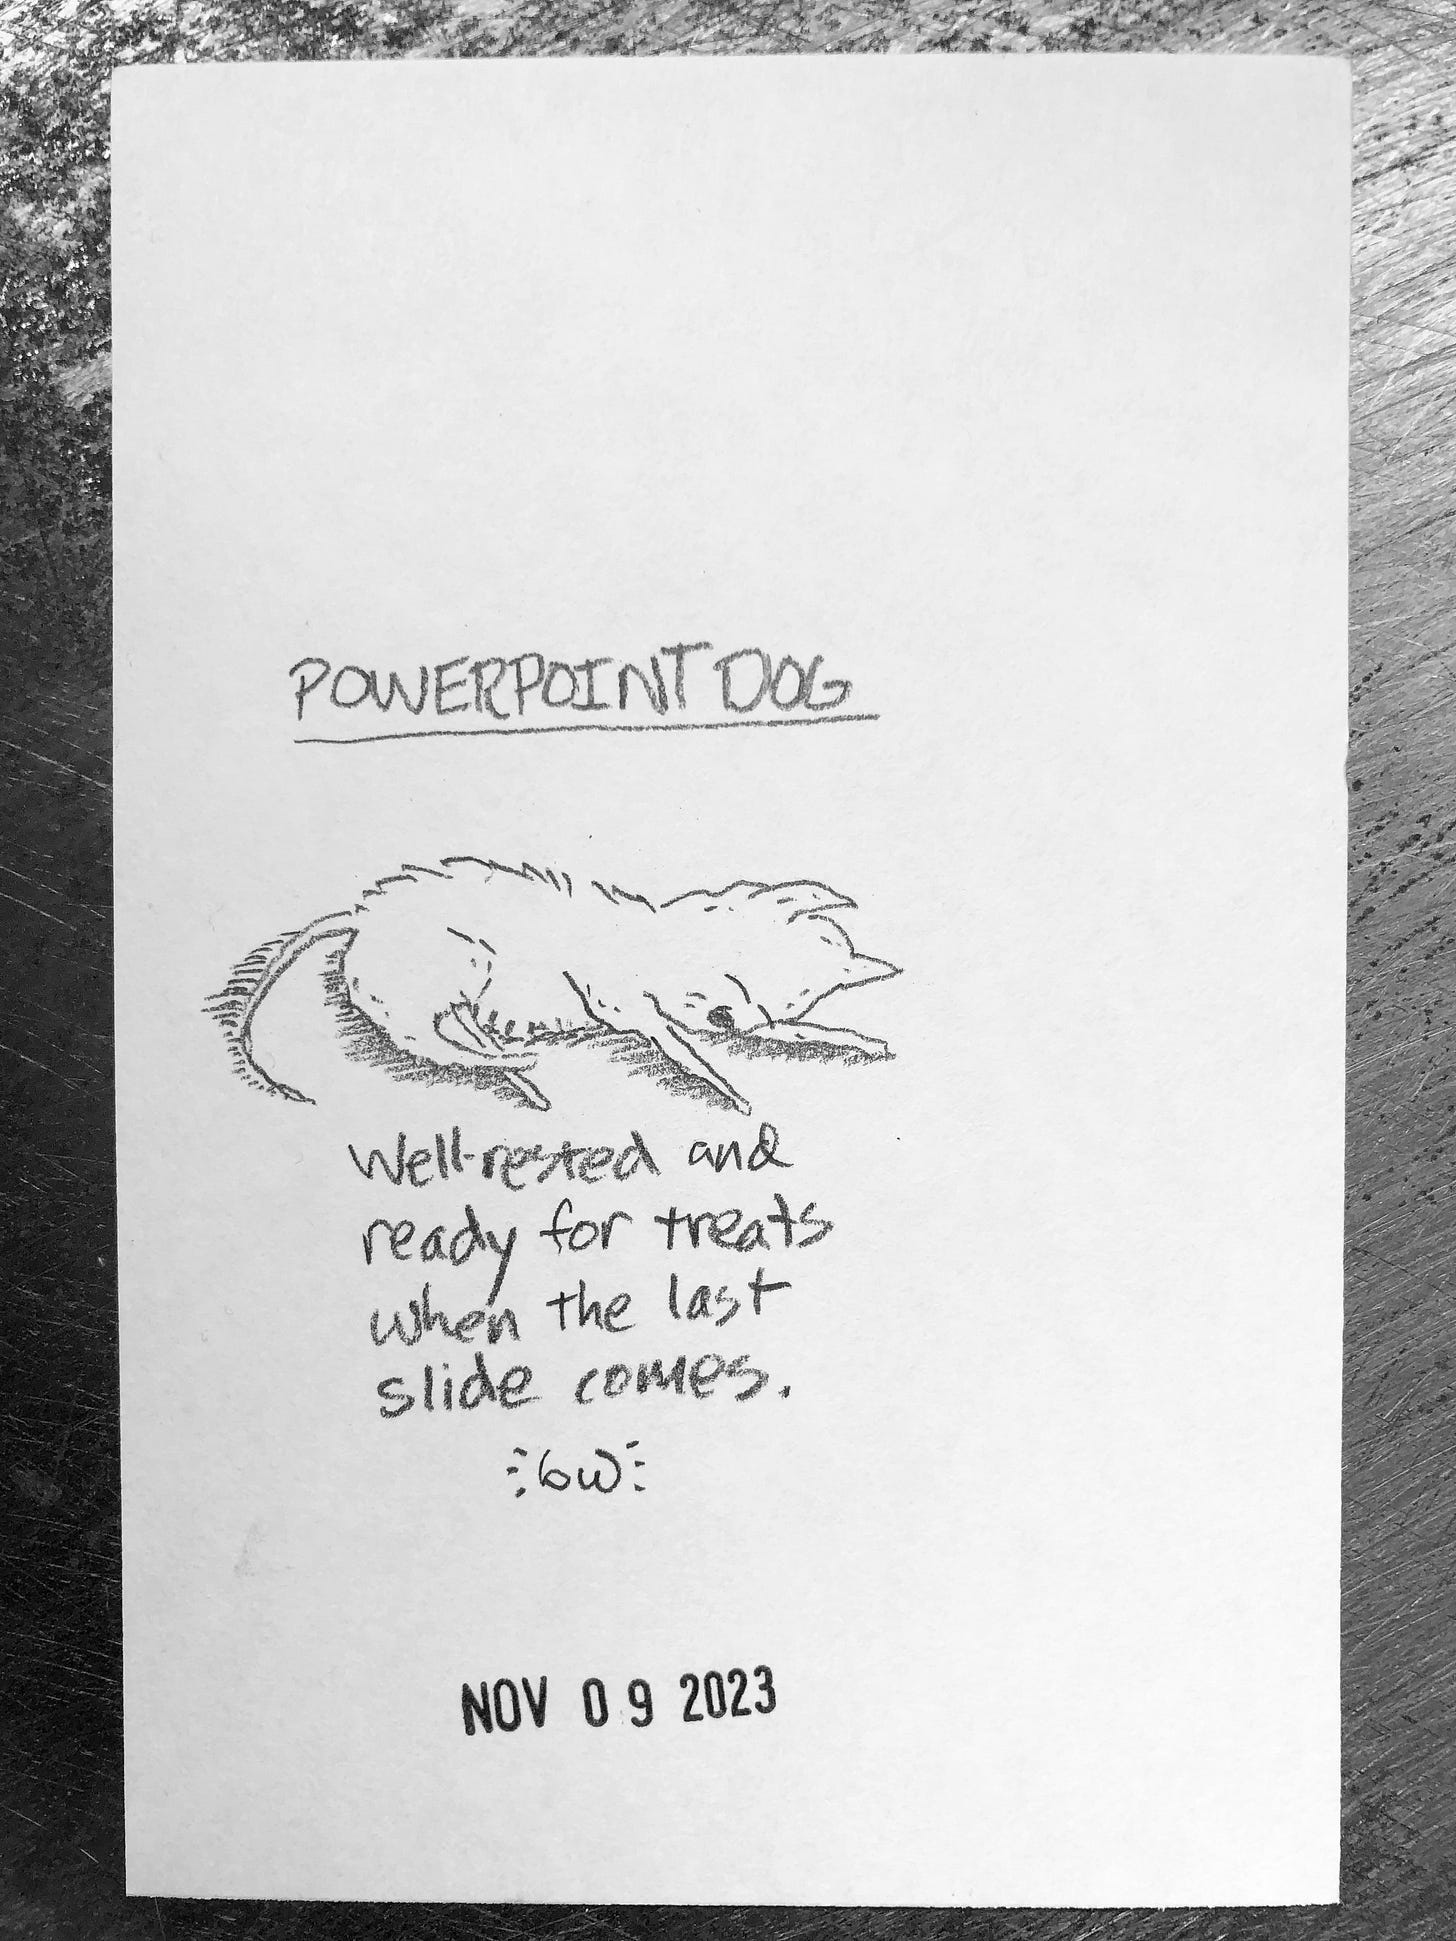 POWERPOINT DOG
Well-rested and
ready for treats
when the last
slide comes.
bw
NOV 09 2023